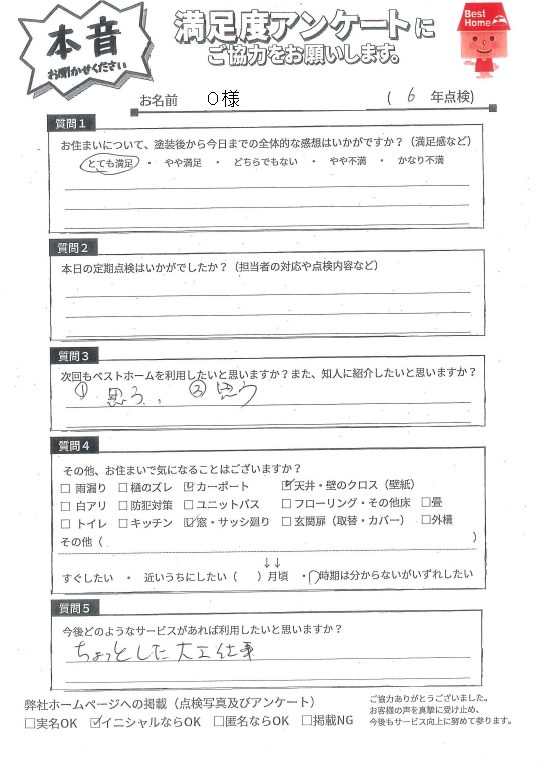 本音
お聞かせください
満足度アンケートに
ご協力をお願いします。
Best Home
お名前 O様 ( 6 年点検)
質問1
お住まいについて、塗装後から今日までの全体的な感想はいかがですか？（満足感など）
とても満足 ・ やや満足 ・ どちらでもない ・ やや不満 ・ かなり不満
質問2
本日の定期点検はいかがでしたか？（担当者の対応や点検内容など）
質問3
次回もベストホームを利用したいと思いますか？また、知人に紹介したいと思いますか？
① 思う、 ② 思う
質問4
その他、お住まいで気になることはございますか？
□ 雨漏り □ 樋のズレ ☑ カーポート ☑ 天井・壁のクロス（壁紙）
□ 白アリ □ 防犯対策 □ ユニットバス □ フローリング・その他床 □畳
□ トイレ □ キッチン ☑ 窓・サッシ廻り □ 玄関扉（取替・カバー） □外構
その他（ ）
↓↓
すぐしたい ・ 近いうちにしたい（ ）月頃 ・ 時期は分からないがいずれしたい
質問5
今後どのようなサービスがあれば利用したいと思いますか？
ちょっとした大工仕事
弊社ホームページへの掲載（点検写真及びアンケート）
□実名OK ☑イニシャルならOK □匿名ならOK □掲載NG
ご協力ありがとうございました。
お客様の声を真摯に受け止め、
今後もサービス向上に努めて参ります。